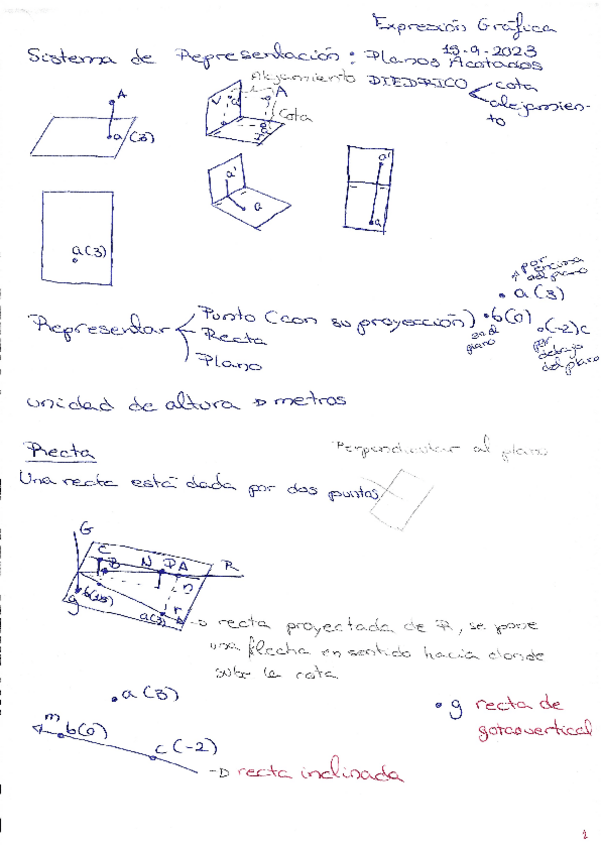 Expresión Gráfica
19-9-2023
Sistema de Representación: Planos Acotados
Alejamiento DIEDRICO cota
alejamien-
to
A
a(3)
V
A
Cota
a'
a
a'
a
a(3)
por encima del plano
a(3)
Representar Punto (con su proyección) b(0) (-2)c
Recta en el plano por debajo del plano
Plano
unidad de altura → metros
Recta
Perpendicular al plano
Una recta está dada por dos puntos
G
C B N D A R
n
g
a(3) r
→ recta proyectada de R, se pone
una flecha en sentido hacia donde
sube la cota
a(3)
g recta de
gota o vertical
m b(0)
c(-2)
→ recta inclinada
1